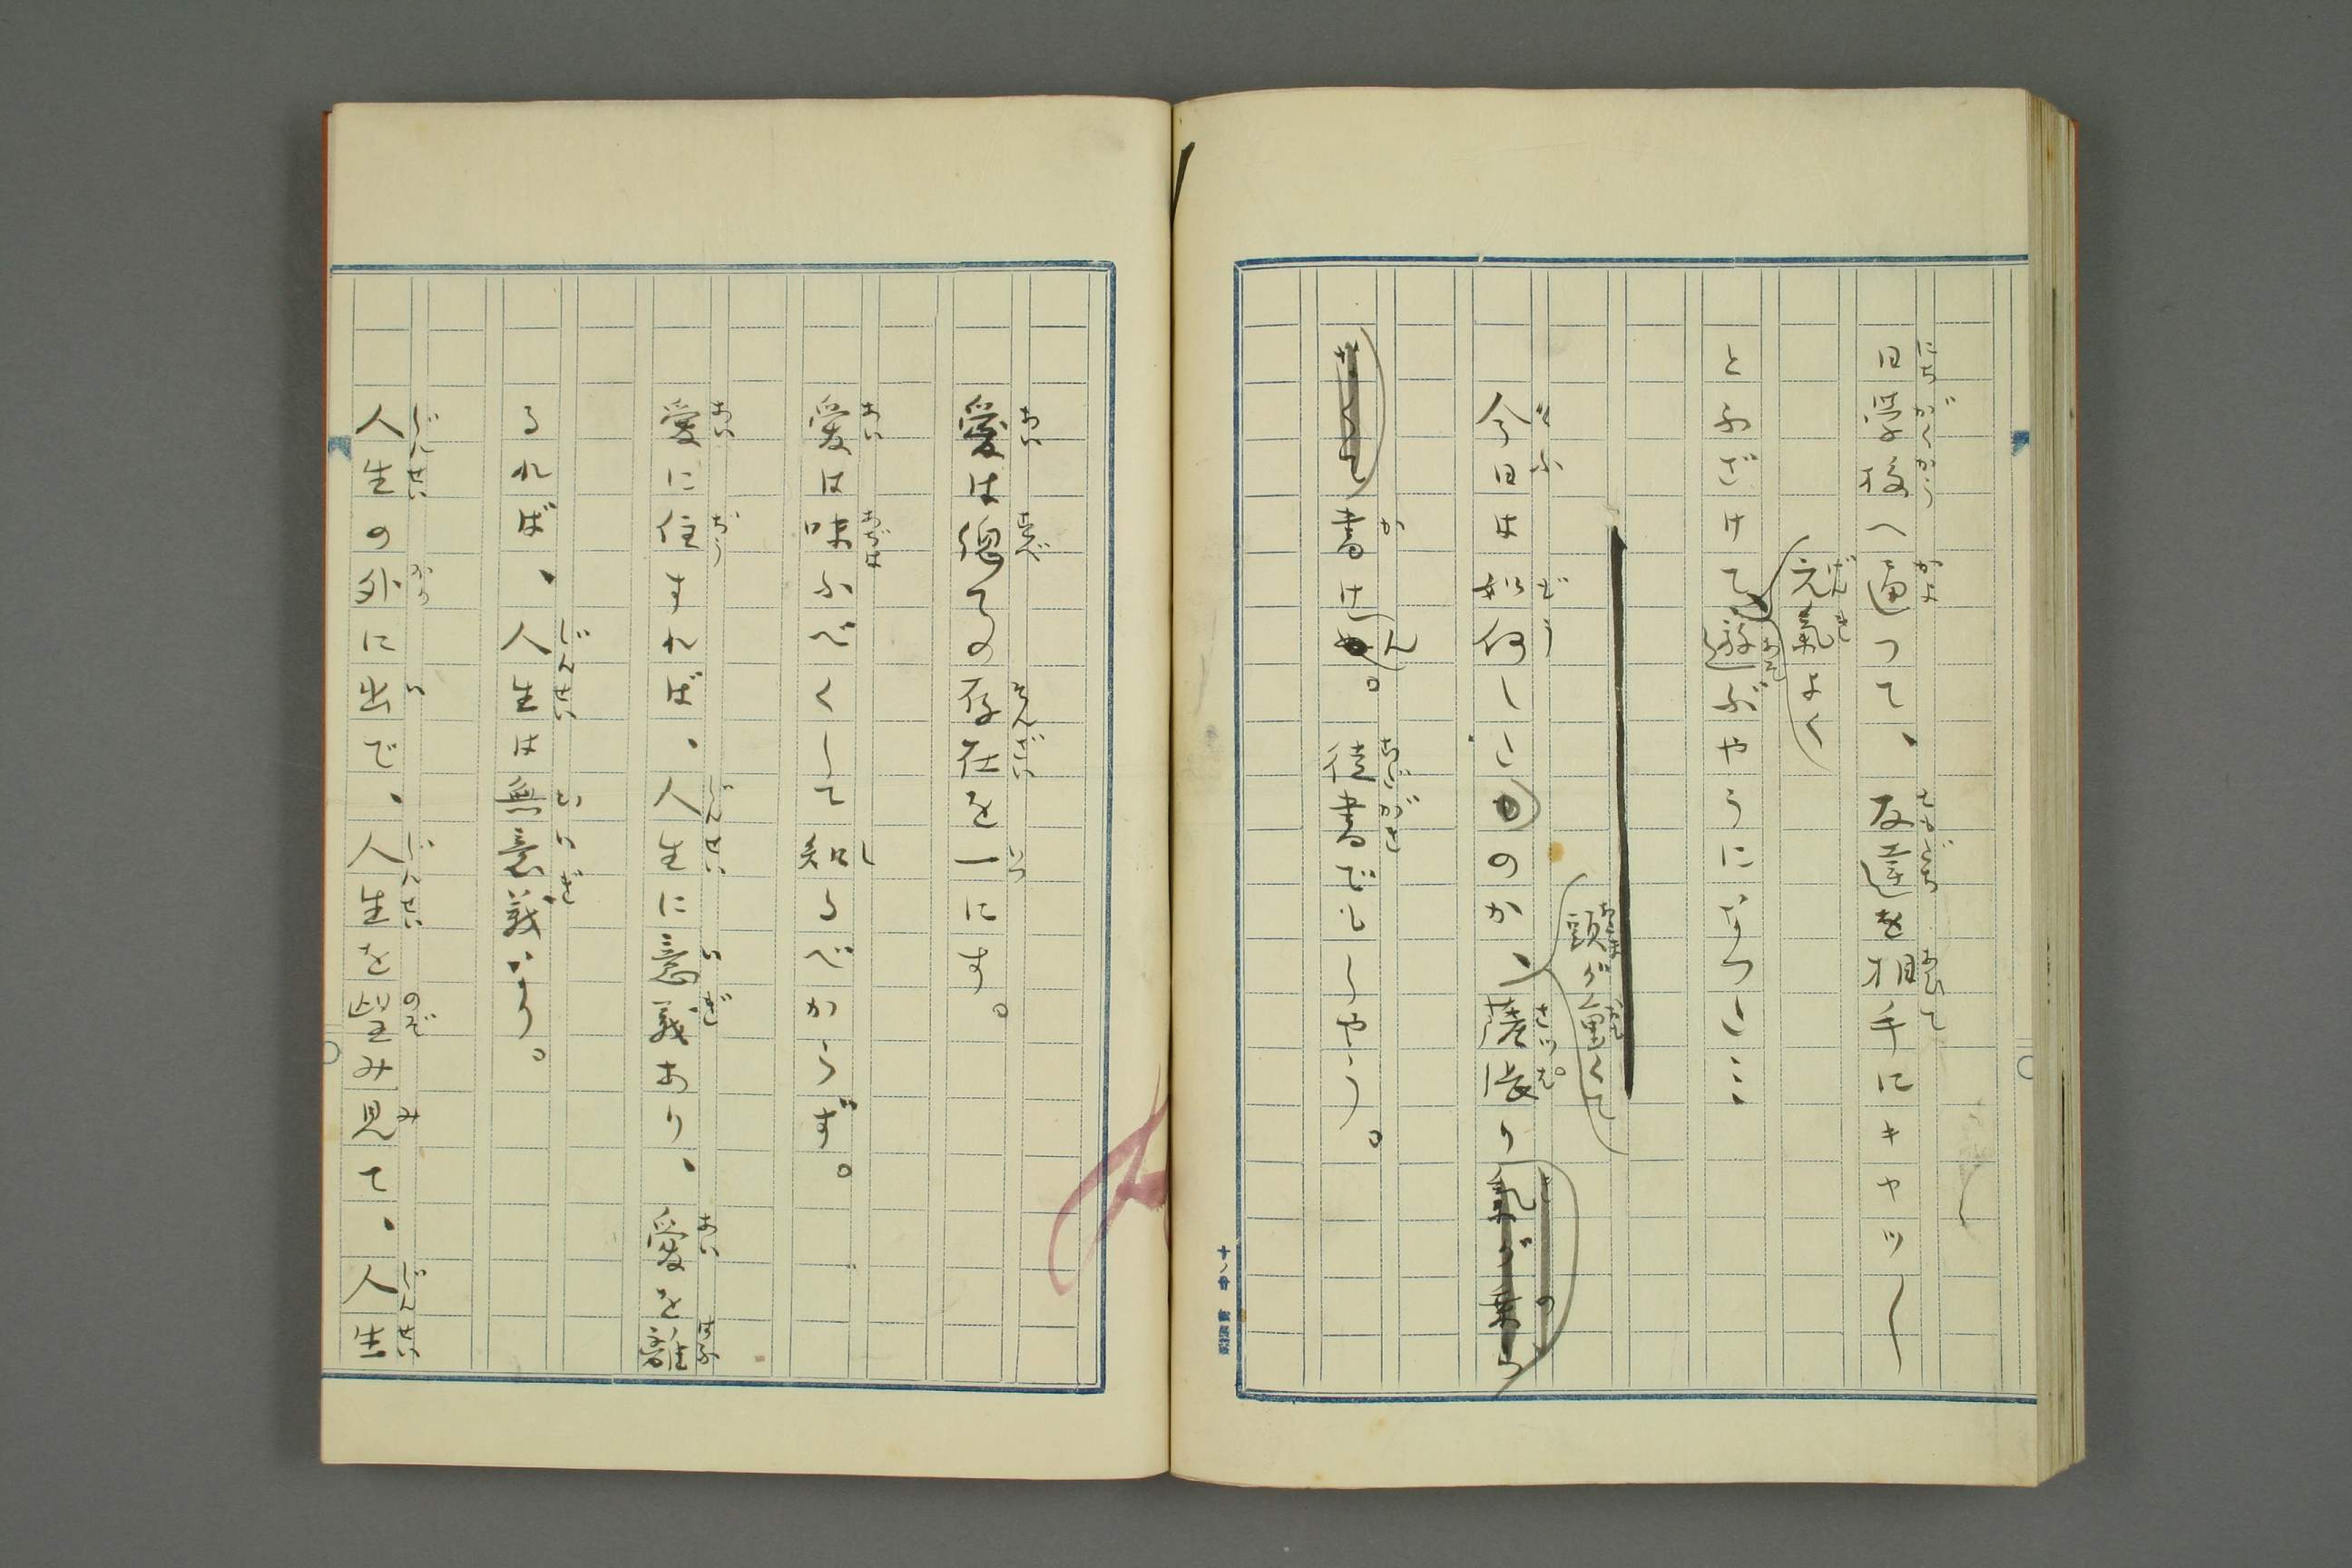 日学校へ通つて、友達を相手にキャッ〱
元氣よく
とふざけて遊ぶやうになつた…
頭が重くて
今日は如何したのか、薩張り
書けん。徒書でもしやう。
愛は總ての存在を一にす。
愛は味ふべくして知るべからず。
愛に住すれば、人生に意義あり、愛を離
るれば、人生は無意義なり。
人生の外に出で、人生を望み見て、人生